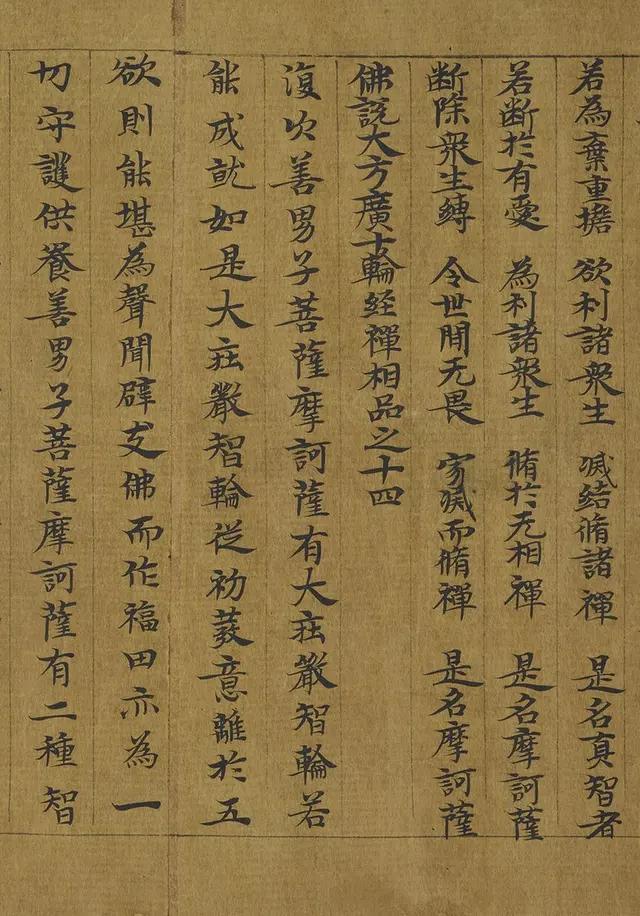 若為棄重擔　欲利諸眾生　滅結脩諸禪　是名真智者
若断於有愛　為利諸眾生　脩於无相禪　是名摩訶薩
断除眾生縛　令世間无畏　寂滅而脩禪　是名摩訶薩
佛說大方廣十輪経禪相品之十四
復次善男子菩薩摩訶薩有大莊嚴智輪若
能成就如是大莊嚴智輪従初發意離於五
欲則能堪為聲聞辟支佛而作福田亦為一
切守護供養善男子菩薩摩訶薩有二種智